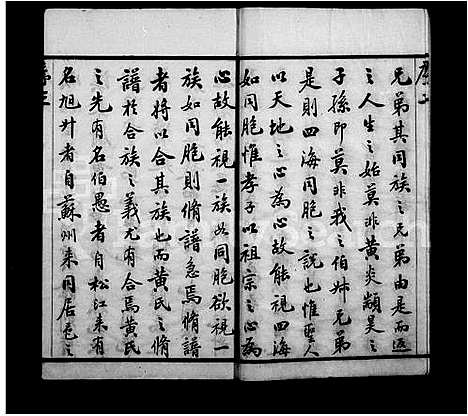 序二
兄弟其同族之兄弟由是而返
之人生之始莫非黄炎顓昊之
子孫即莫非我之伯姊兄弟
是則四海同胞之說也惟聖人
以天地之心為心故能視四海
如同胞惟孝子以祖宗之心為
心故能視一族如同胞欲視一
族如同胞則脩譜急焉脩譜
者將以合其族也而黄氏之脩
譜於合族之義尤有合焉黄氏
之先有名伯愚者自松江来有
名旭升者自蘇州来同居邑之
序三